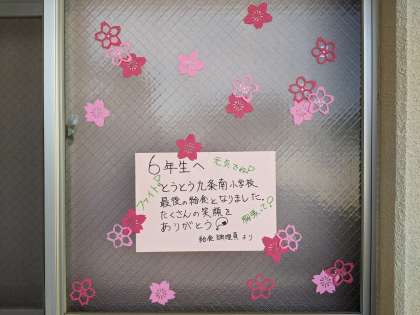 6年生へ
元気でね♡
ファイト♡
とうとう九条南小学校
最後の給食となりました。
たくさんの笑顔を
ありがとう
頑張って♡
給食調理員より